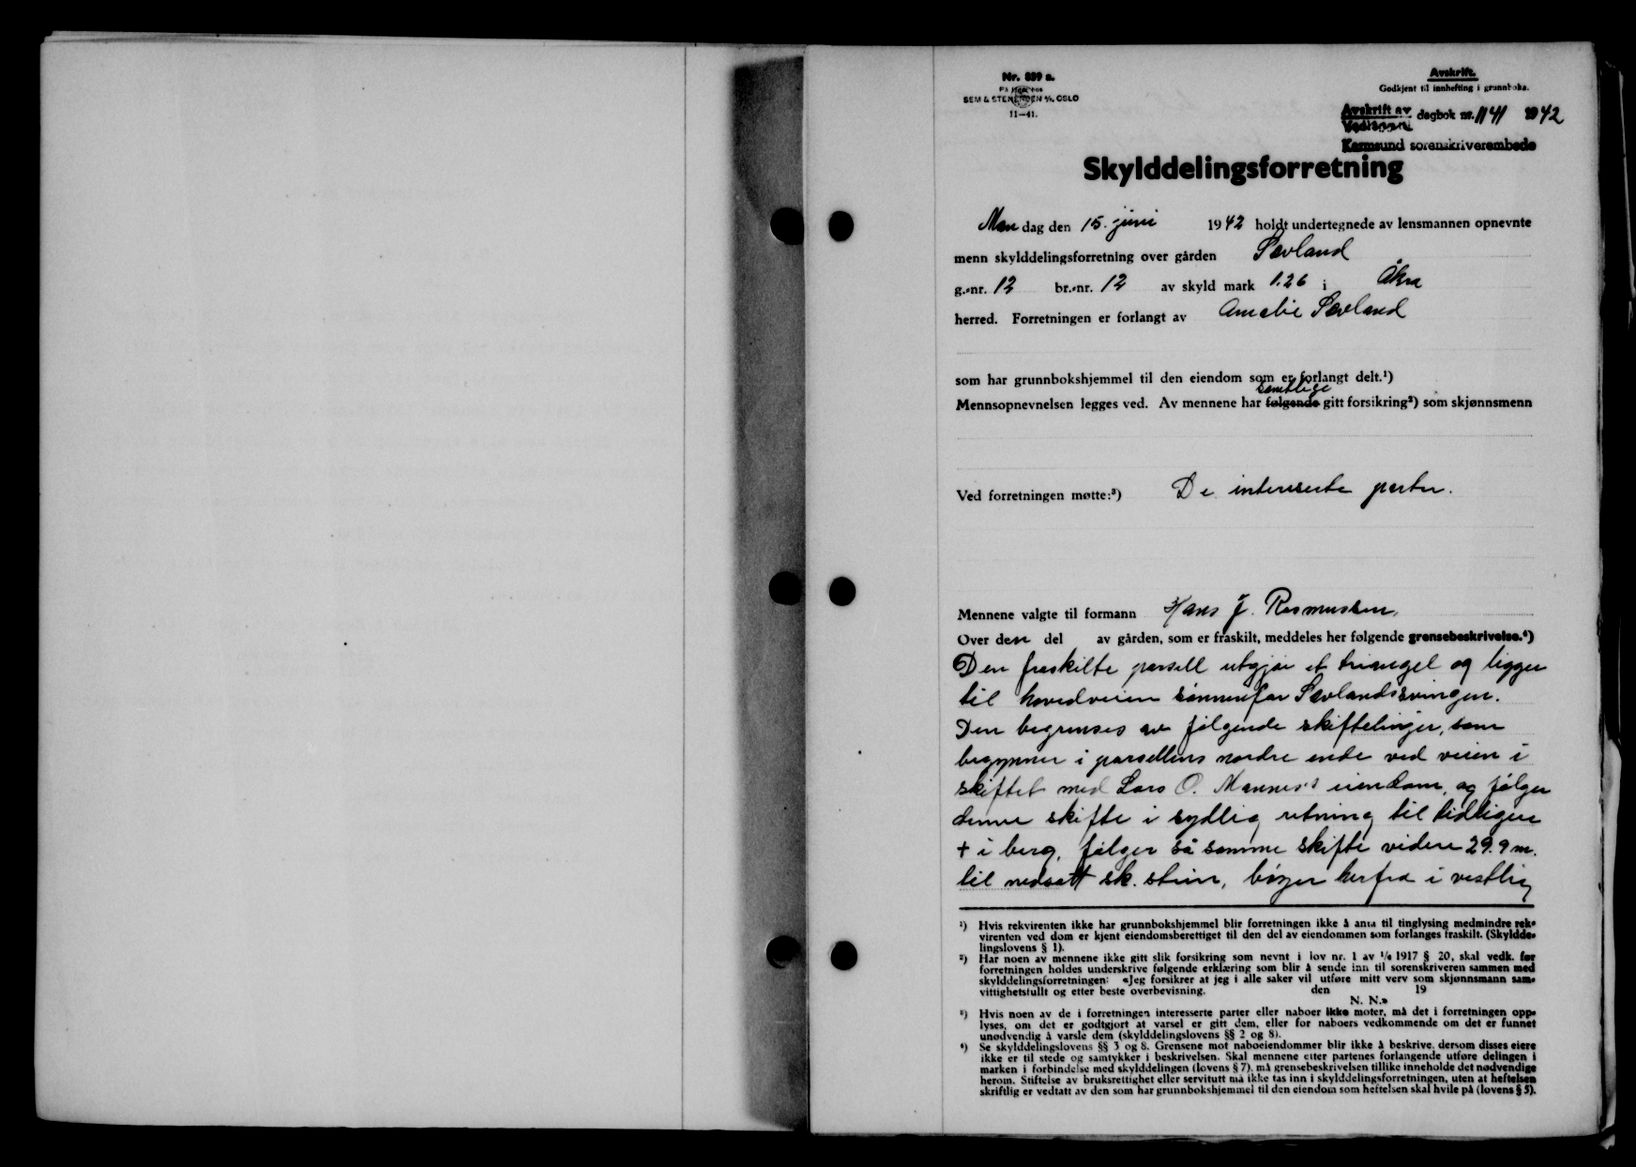 Nr. 839 a.
SEM & STENERSEN A/S, OSLO
11—41.
Avskrift.
Godkjent til innhefting i grunnboka.
Avskrift av dagbok nr. 1141 1942
Karmsund sorenskriverembede
Skylddelingsforretning
Man dag den 15. juni 1942 holdt undertegnede av lensmannen opnevnte
menn skylddelingsforretning over gården Sævland
g.-nr. 12 br.-nr. 12 av skyld mark 1.26 i Åkra
herred. Forretningen er forlangt av Amalie Sævland
som har grunnbokshjemmel til den eiendom som er forlangt delt.¹)
samtlige
Mennsopnevnelsen legges ved. Av mennene har følgende gitt forsikring²) som skjønnsmenn
Ved forretningen møtte:³) De interesserte parter.
Mennene valgte til formann Hans J. Rasmussen.
Over den del av gården, som er fraskilt, meddeles her følgende grensebeskrivelse.⁴)
Den fraskilte parsell utgjør et triangel og ligger
til hovedveien sønnenfor Sævlandssvingen.
Den begrenses av følgende skiftelinjer, som
begynner i parsellens nordre ende ved veien i
skiftet med Lars O. Mannes's eiendom, og følger
denne skifte i sydlig retning til tidligere
+ i berg, følger så samme skifte videre 29.9 m.
til nedsatt sk. stein, bøyer herfra i vestlig
¹) Hvis rekvirenten ikke har grunnbokshjemmel blir forretningen ikke å anta til tinglysing medmindre rek-
virenten ved dom er kjent eiendomsberettiget til den del av eiendommen som forlanges fraskilt. (Skyldde-
lingslovens § 1).
²) Har noen av mennene ikke gitt slik forsikring som nevnt i lov nr. 1 av 1/6 1917 § 20, skal vedk. før
forretningen holdes underskrive følgende erklæring som blir å sende inn til sorenskriveren sammen med
skylddelingsforretningen: «Jeg forsikrer at jeg i alle saker vil utføre mitt verv som skjønnsmann sam-
vittighetsfullt og etter beste overbevisning. den 19
N. N.»
³) Hvis noen av de i forretningen interesserte parter eller naboer ikke møter, må det i forretningen opp-
lyses, om det er godtgjort at varsel er gitt dem, eller for naboers vedkommende om det er funnet
unødvendig å varsle dem (skylddelingslovens §§ 2 og 8).
⁴) Se skylddelingslovens §§ 3 og 8. Grensene mot naboeiendommer blir ikke å beskrive, dersom disses eiere
ikke er til stede og samtykker i beskrivelsen. Skal mennene etter partenes forlangende utføre delingen i
marken i forbindelse med skylddelingen (lovens § 7), må grensebeskrivelsen tillike inneholde det nødvendige
herom. Stiftelse av bruksrettighet eller servitutt må ikke tas inn i skylddelingsforretningen, uten at heftelsen
skriftlig er vedtatt av den som har grunnbokshjemmel til den eiendom som heftelsen skal hvile på (lovens § 5).